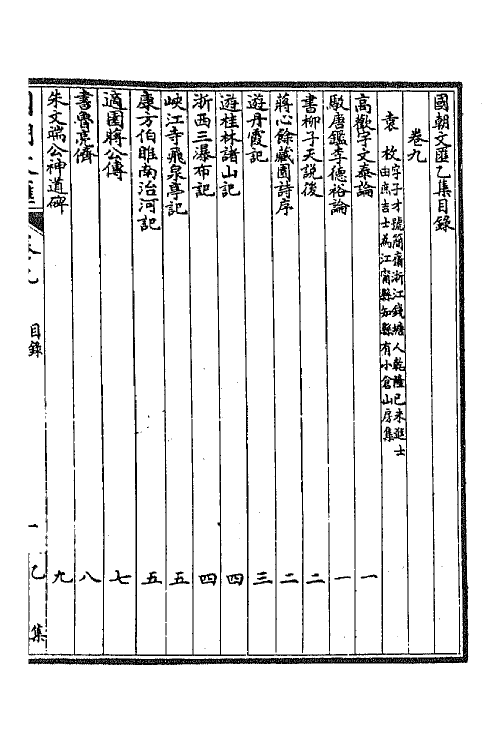 國朝文匯乙集目錄
卷九
袁枚 字子才號簡齋浙江錢塘人乾隆已未進士
由庶吉士為江甯縣知縣有小倉山房集
高歡宇文泰論 一
駁唐鑑李德裕論 一
書柳子天說後 二
蔣心餘藏園詩序 二
遊丹霞記 三
遊桂林諸山記 四
浙西三瀑布記 四
峽江寺飛泉亭記 五
康方伯睢南治河記 五
適園蔣公傳 七
書魯亮儕 八
朱文端公神道碑 九
目錄
一
乙集